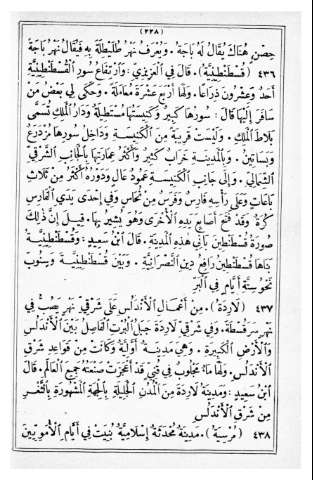 (٢٢٨)
حصن هناك يقال له باجة. ويعرف نهر طليطلة به فيقال نهر باجة
٤٣٦ (قسطنطينية). قال في العزيزي: وارتفاع سور القسطنطينية
أحد وعشرون ذراعا. ولها أربع عشرة معاملة. وحكى لي بعض من
سافر إليها قال: سورها كبير وكنيستها مستطيلة ودار الملك تسمى
بلاط الملك. وليست قريبة من الكنيسة وداخل سورها مزدرع
وبساتين. وبالمدينة خراب كثير وأكثر عمارتها بالجانب الشرقي
الشمالي. وإلى جانب الكنيسة عمود عال ودوره أكثر من ثلاث
باعات وعلى رأسه فارس وفرس من نحاس وفي إحدى يدي الفارس
كرة وقد فتح أصابع يده الأخرى وهو يشير بها. قيل إن ذلك
صورة قسطنطين باني هذه المدينة. قال ابن سعيد: وقسطنطينية
بناها قسطنطين رافع دين النصرانية. وبين قسطنطينية وسنوب
نحو ستة أيام في البر
٤٣٧ (لاردة). من أعمال الأندلس على شرقي نهر يصب في
نهر سرقسطة. وفي شرقي لاردة جبل البرت الفاصل بين الأندلس
والأرض الكبيرة. وهي مدينة أولية وكانت من قواعد شرق
الأندلس. ولها ماء مجلوب في قني قد أعجزت صنعته جميع العالم. قال
ابن سعيد: ومدينة لاردة من المدن الجليلة بالجهة المشهورة بالثغر
من شرق الأندلس
٤٣٨ (مرسية). مدينة محدثة إسلامية بنيت في أيام الأمويين